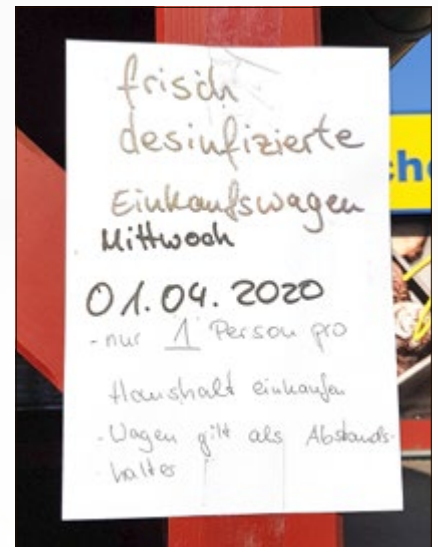 frisch
desinfizierte
Einkaufswagen
Mittwoch
01.04.2020
-nur 1 Person pro
Haushalt einkaufen
-Wagen gilt als Abstands-
halter
ch